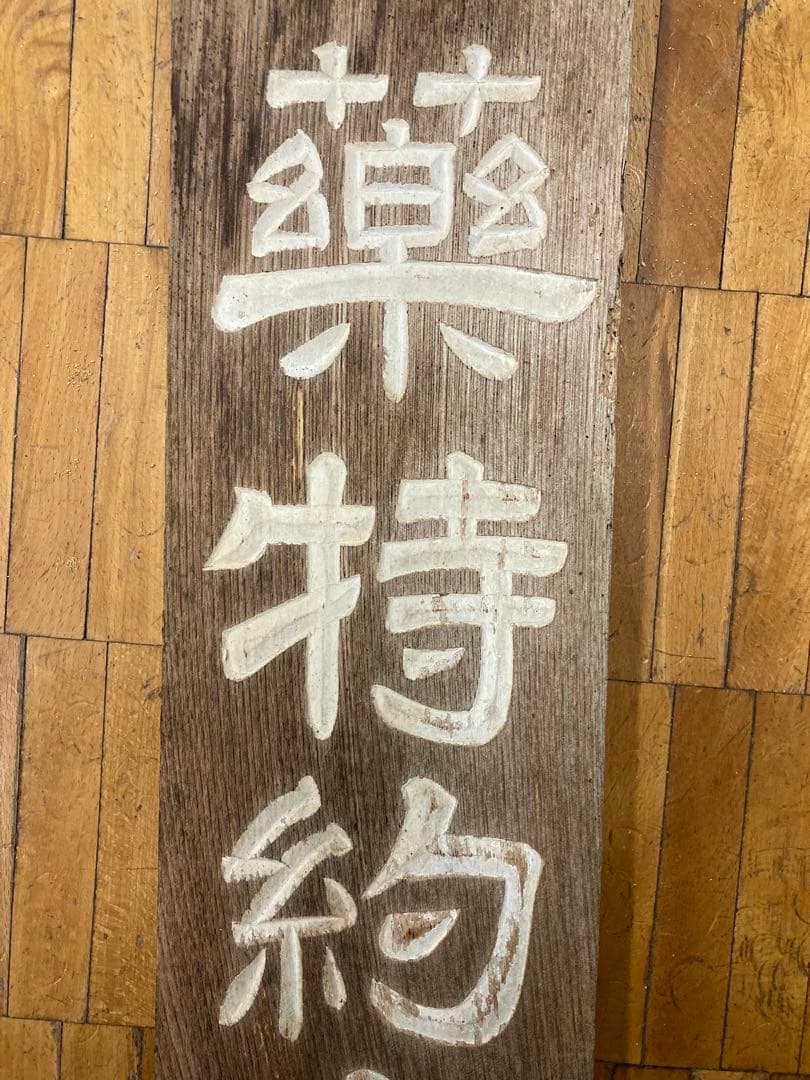 藥特約